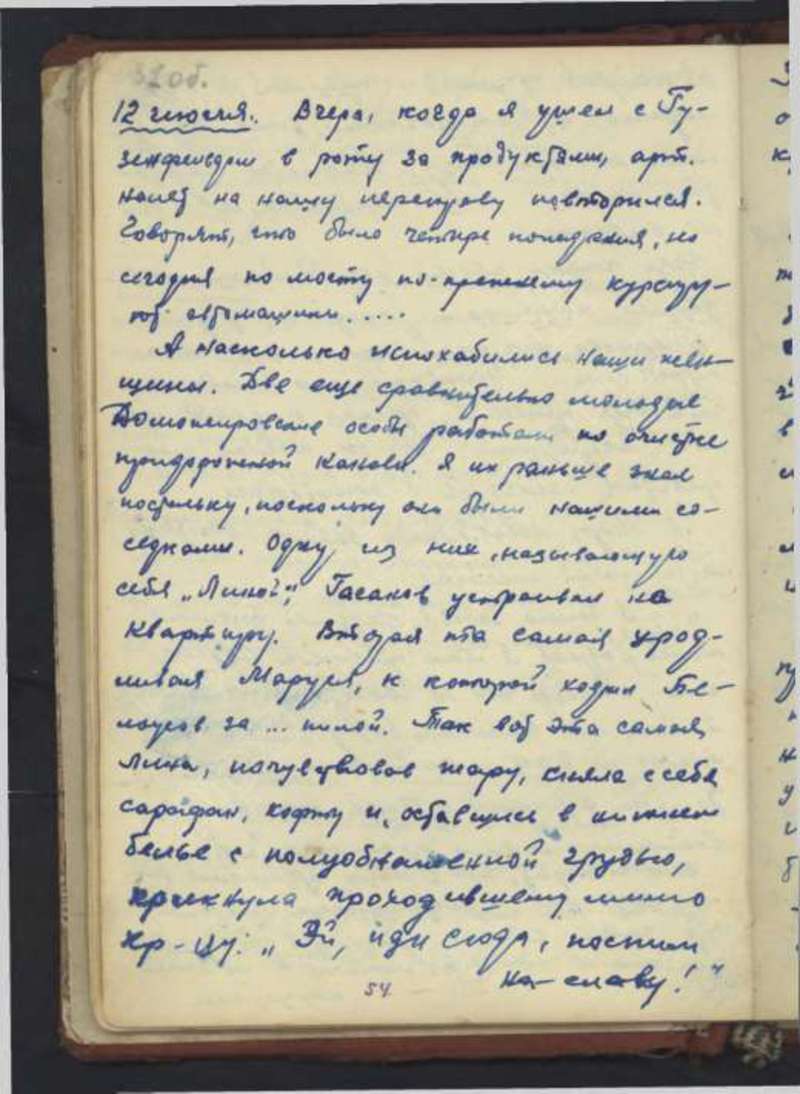 31 об.
12 июля. Вчера, когда я ушел с Гу-
зенфельдом в роту за продуктами, арт.
налет на нашу переправу повторился.
Говорят, что было четыре попадания, но
сегодня по мосту по-прежнему курсиру-
ют автомашины.....
А насколько испохабились наши жен-
щины. Две еще сравнительно молодые
особы работали по очистке
придорожной канавы. Я их раньше знал
постольку, поскольку они были нашими со-
седками. Одну из них, называющую
себя „Линой", Гасанов устраивал на
квартиру. Вторая эта самая урод-
ливая Маруся, к которой ходил Бе-
лоусов за ... пилой. Так вот эта самая
Лина, почувствовав жару, сняла с себя
сарафан, кофту и, оставшись в нижнем
белье с полуобнаженной грудью,
крикнула проходившему мимо
кр-цу: „Эй, иди сюда, поспим
на-славу!"
54